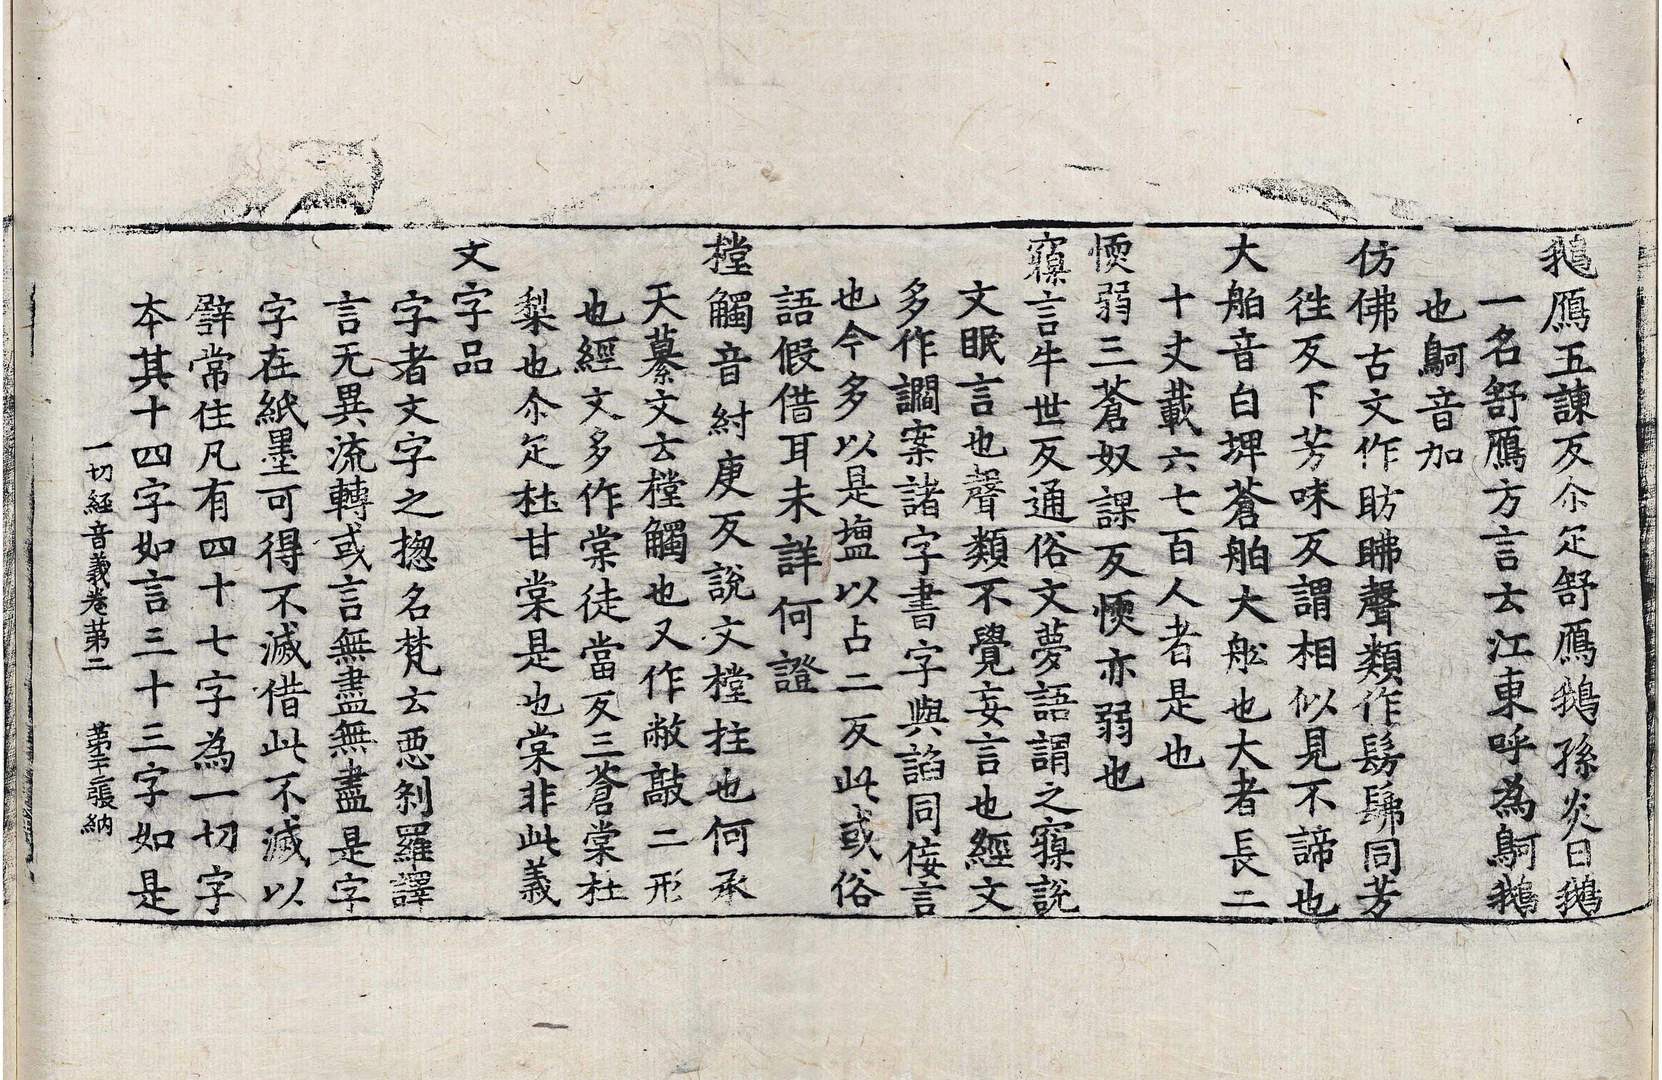 鵝鴈五諫反尒疋舒鴈鵝孫炎曰鵝
一名舒鴈方言云江東呼為鴚鵝
也鴚音加
仿佛古文作眆䀟聲類作髣髴同芳
往反下芳味反謂相似見不諦也
大舶音白埤蒼舶大舩也大者長二
十丈載六七百人者是也
愞弱三蒼奴課反愞亦弱也
寱言牛世反通俗文夢語謂之寱說
文眠言也聲類不覺妄言也經文
多作讇案諸字書字與諂同佞言
也今多以是壇以占二反此或俗
語假借耳未詳何證
樘觸音紂庚反說文樘柱也何承
天纂文云樘觸也又作敝敲二形
也經文多作棠徒當反三蒼棠杜
梨也尒疋杜甘棠是也棠非此義
文字品
字者文字之揔名梵云惡剎羅譯
言无異流轉或言無盡無盡是字
字在紙墨可得不滅借此不滅以
譬常住凡有四十七字為一切字
本其十四字如言三十三字如是
一切経音義卷苐二 苐三張納